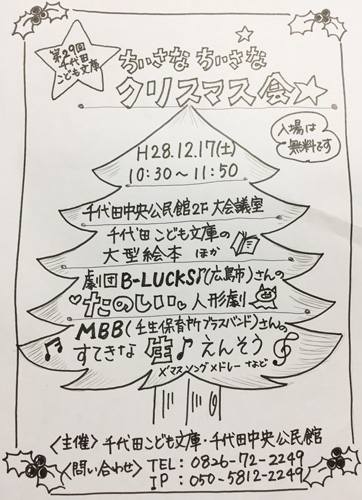 第29回
千代田
こども文庫
ちいさな ちいさな
クリスマス会☆
入場は
無料です
H28.12.17(土)
10:30~11:50
千代田中央公民館2F 大会議室
千代田こども文庫の
大型絵本 ほか
劇団B-LUCKS♪(広島市)さんの
♡たのしい 人形劇
MBB(壬生保育所ブラスバンド)さんの
♫すてきな 生♪えんそう
X'マスソングメドレー など
<主催> 千代田こども文庫・千代田中央公民館
<問い合わせ> TEL: 0826-72-2249
IP: 050-5812-2249